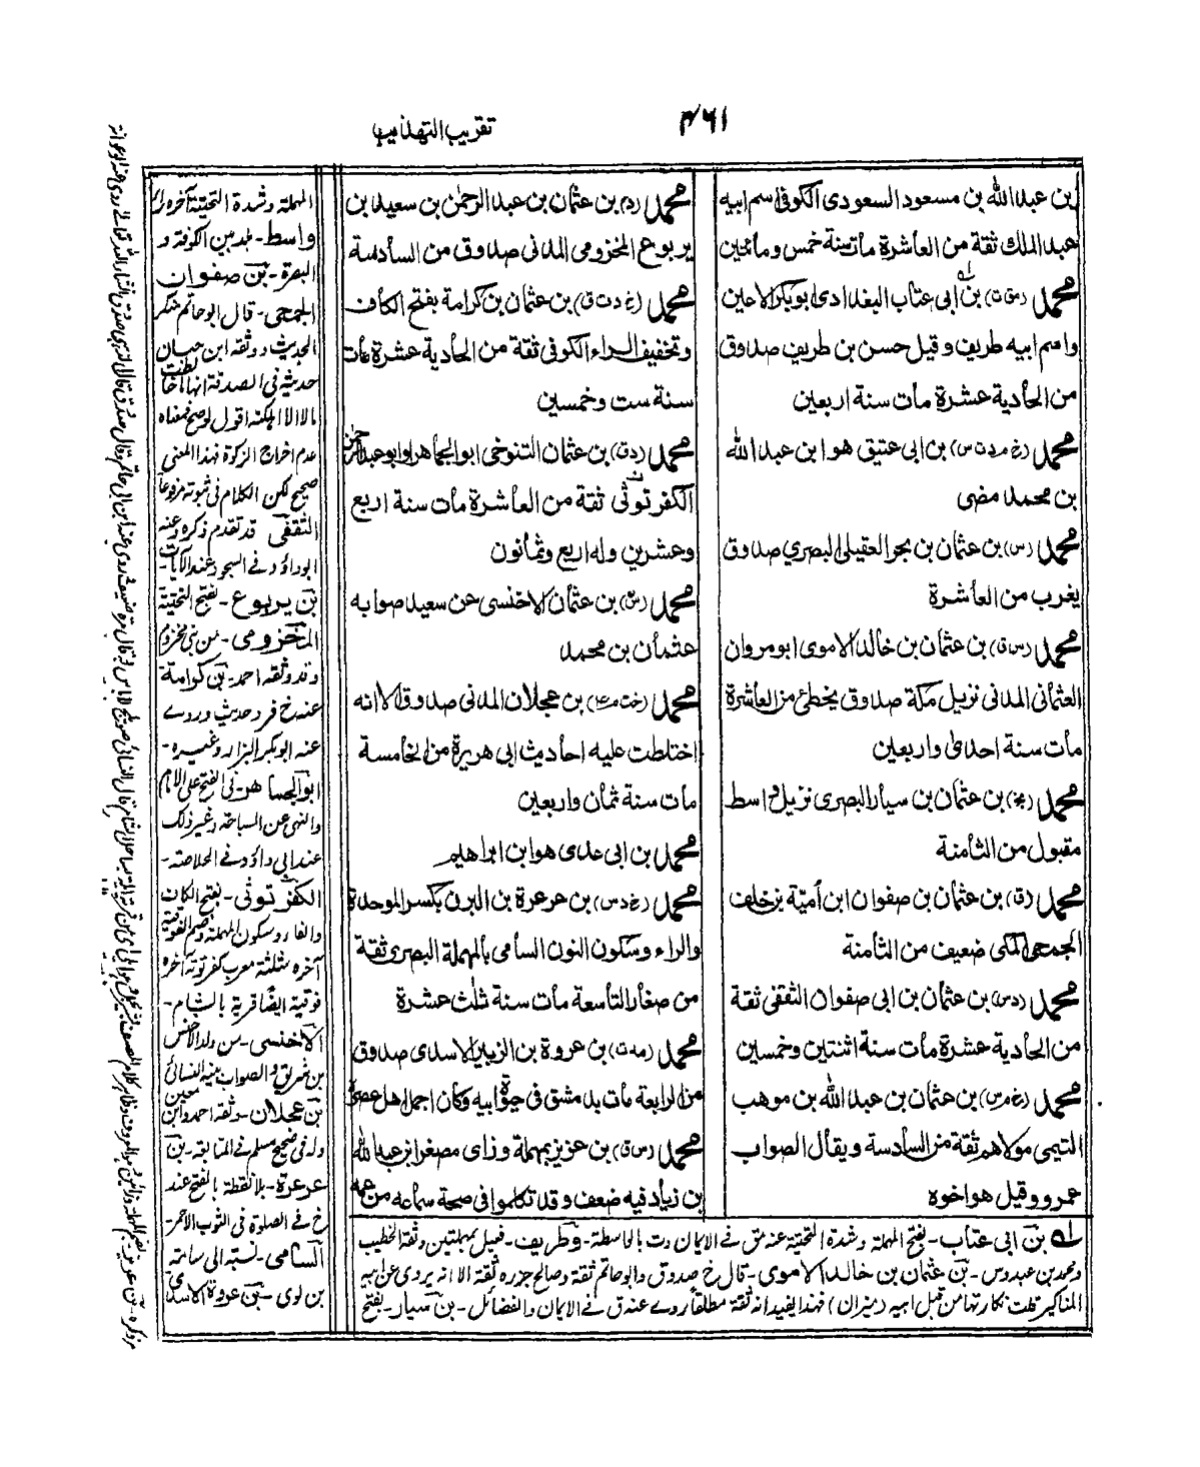 ٤٦١
تقريب التهذيب
ابن عبد الله بن مسعود السعودى الكوفى اسم ابيه
عبد الملك ثقة من العاشرة مات سنة خمس ومأتين
محمد بن ابى عتاب البغدادى ابو بكر الاعين
واسم ابيه طريف وقيل حسن بن طريف صدوق
من الحادية عشرة مات سنة اربعين
محمد بن ابى عتيق هو ابن عبد الله
بن محمد مضى
محمد (س) بن عثمان بن بحر العقيلى البصري صدوق
يغرب من العاشرة
محمد (س ق) بن عثمان بن خالد الاموى ابو مروان
العثمانى المدنى نزيل مكة صدوق يخطئ من العاشرة
مات سنة احدى واربعين
محمد بن عثمان بن سيار البصرى نزيل واسط
مقبول من الثامنة
محمد (ق) بن عثمان بن صفوان ابن أميّة بن خلف
الجمحى المكى ضعيف من الثامنة
محمد (دس) بن عثمان بن ابى صفوان الثقفى ثقة
من الحادية عشرة مات سنة اثنتين وخمسين
محمد (خ م س) بن عثمان بن عبد الله بن موهب
التيمى مولاهم ثقة من السادسة ويقال الصواب
عمرو وقيل هو اخوه
محمد (د) بن عثمان بن عبد الرحمٰن بن سعيد بن
يربوع المخزومى المدنى صدوق من السادسة
محمد (خ د ت ق) بن عثمان بن كرامة بفتح الكاف
وتخفيف الراء الكوفى ثقة من الحادية عشرة مات
سنة ست وخمسين
محمد (د ق) بن عثمان التنوخى ابو الجماهر او ابو عبد الرحمن
الكفرتوثى ثقة من العاشرة مات سنة اربع
وعشرين وله اربع وثمانون
محمد بن عثمان الاخنسى عن سعيد صوابه
عثمان بن محمد
محمد (خت م ٤) بن عجلان المدنى صدوق الا انه
اختلطت عليه احاديث ابى هريرة من الخامسة
مات سنة ثمان واربعين
محمد بن ابى عدى هو ابن ابراهيم
محمد (م د س) بن عرعرة بن البرند بكسر الموحدة
والراء وسكون النون السامى بالمهملة البصرى ثقة
من صغار التاسعة مات سنة ثلث عشرة
محمد بن عروة بن الزبير الاسدى صدوق
من الرابعة مات بدمشق فى حيوة ابيه وكان اجمل اهل عصره
محمد (س ق) بن عزيز بمهملة وزاى مصغر ابن عبد الله
بن زياد فيه ضعف وقد تكلموا فى صحة سماعه من عمه
المهملة وشدة التحتية آخره راء
واسط - بلد بين الكوفة و
البصرة - بن صفوان
الجمحى - قال ابو حاتم منكر
الحديث ووثقه ابن حبان
حديثه فى الصدقة انها ما خالطت
مالا الا اهلكته اقول لو صح فمعناه
عدم اخراج الزكوة فهذا المعنى
صحيح لكن الكلام فى ثبوته مرفوعا
الثقفى قد تقدم ذكره وعنه
ابو داؤد فى السجود عند الآيات
بن يربوع - بفتح التحتية
المخزومى - من بنى مخزوم
وقد وثقه احمد - بن كرامة
عنه خ فرد حديث وروى
عنه ابو بكر البزار وغيره -
ابو الجماهر - فى الفتح على الامام
والنهى عن السباخة وغير ذلك
عند ابى داؤد وفى الخلاصة -
الكفرتوثى - بفتح الكاف
والفاء وسكون المهملة وضم الفوقية
آخره مثلثة معرب كفرتوته آخره
فوقية ايضا قرية بالشام -
الاخنسى - من ولد الاخنس
بن شريق والصواب
بن عجلان - وثقه احمد وابن معين
وله فى صحيح مسلم فى المتابعة - بن
عرعرة - بلا نقطة بالفتح عند
خ فى الصلوة فى الثوب الاحمر -
السامى - نسبة الى سامة
بن لوى - بن عروة الاسدى
له بن ابى عتاب - بفتح المهملة وشدة التحتية عنه مق فى الايمان وت بالواسطة - وطريف - فعيل بمهملتين وثقه الخطيب
ومحمد بن عبدوس - بن عثمان بن خالد الاموى - قال خ صدوق وابو حاتم ثقة وصالح جزره ثقة الا انه يروى عن ابيه
المناكير قلت نكارتها من قبل ابيه (ميزان) فهذا يفيد انه ثقة مطلقا روى عنه ق فى الايمان والفضائل - بن سيار - بفتح